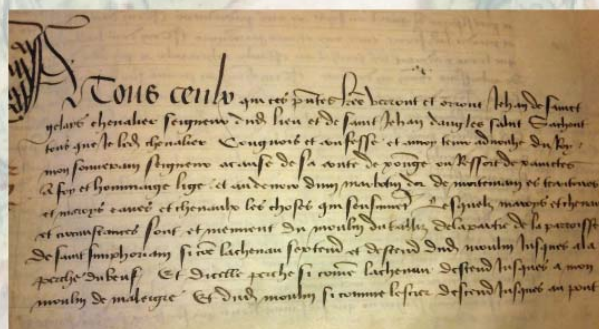 A Tous ceulx qui ces p̃ntes lr̃es verront et orront Jehan de sainct
gelays chevalier seigneur dud lieu et de saint Jehan dangles salut Sachent
tous que Je led chevalier Congnois et confesse et advoy tenir adveuhe du Roy
mon souverain seigneur a cause de sa conte de xonge ou Ressort de xainctes
a foy et hommaige lige et au devoir dun de mortemain es
et maroys eaues et chenaulx les choses qui sensuivent Lesquelx maroys et chenau
et circunstances sont et meuvent du moulin du de la partie de la parroisse
de saint simphorian si cõe lachenau sextend et descend dud moulin Jusques a la
perche du beuf Et dicelle perche si comme lachenau descend Jusques a mon
moulin de malaigre Et dud moulin si comme lestier descend Jusques au pont